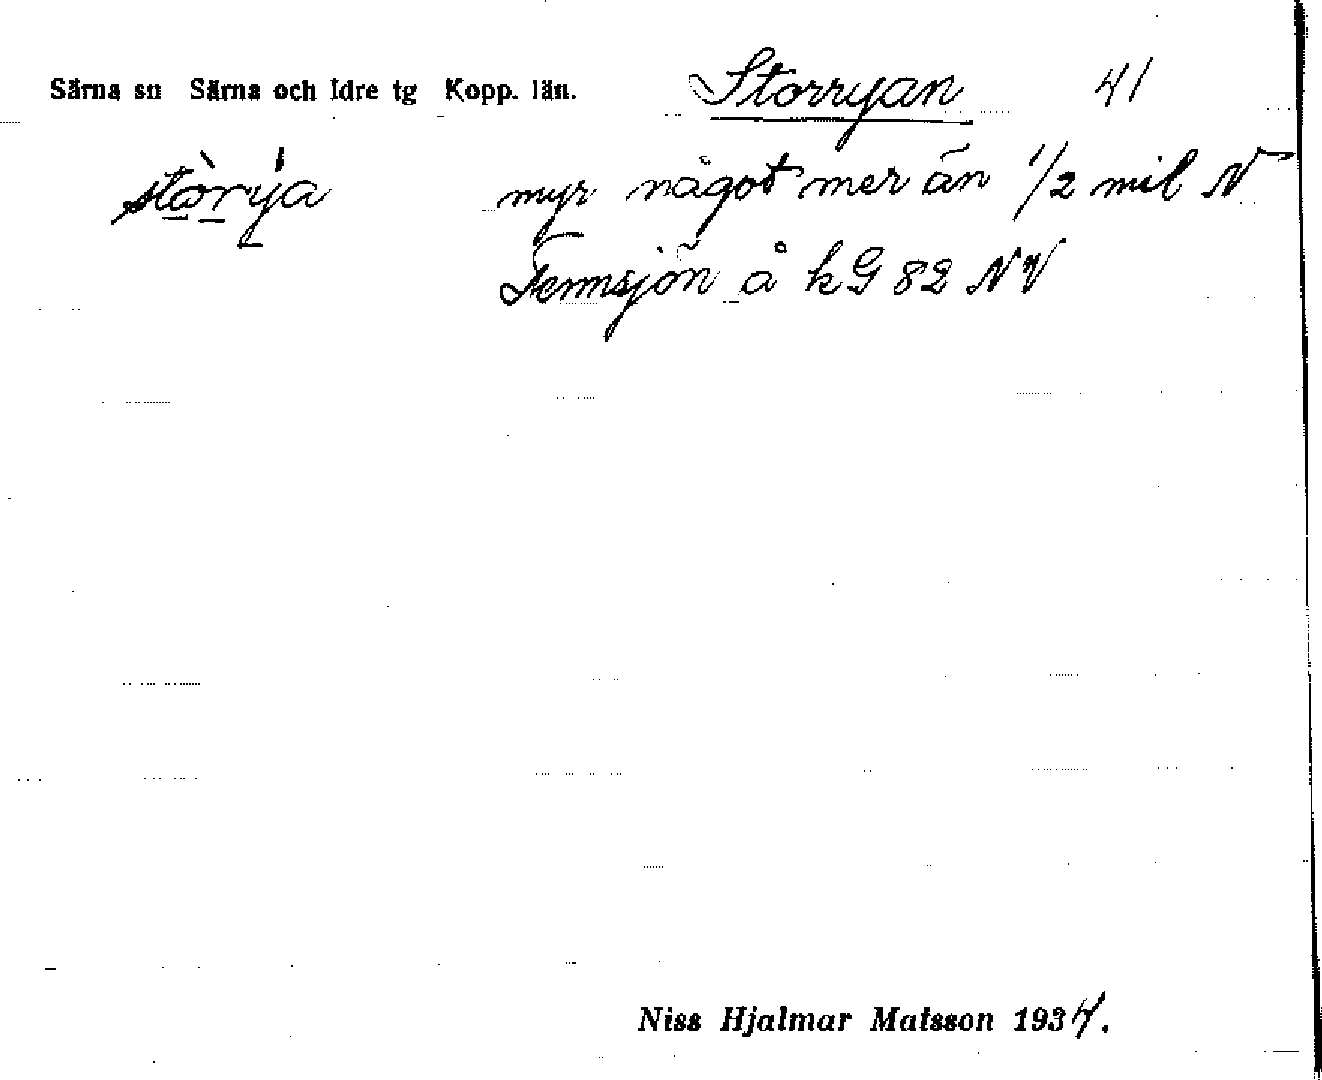 Särna sn Särna och Idre tg Kopp. län. Storryan 41
stòrýa myr något mer än 1/2 mil N
Femmsjön å kG 82 NV
Niss Hjalmar Matsson 1934.